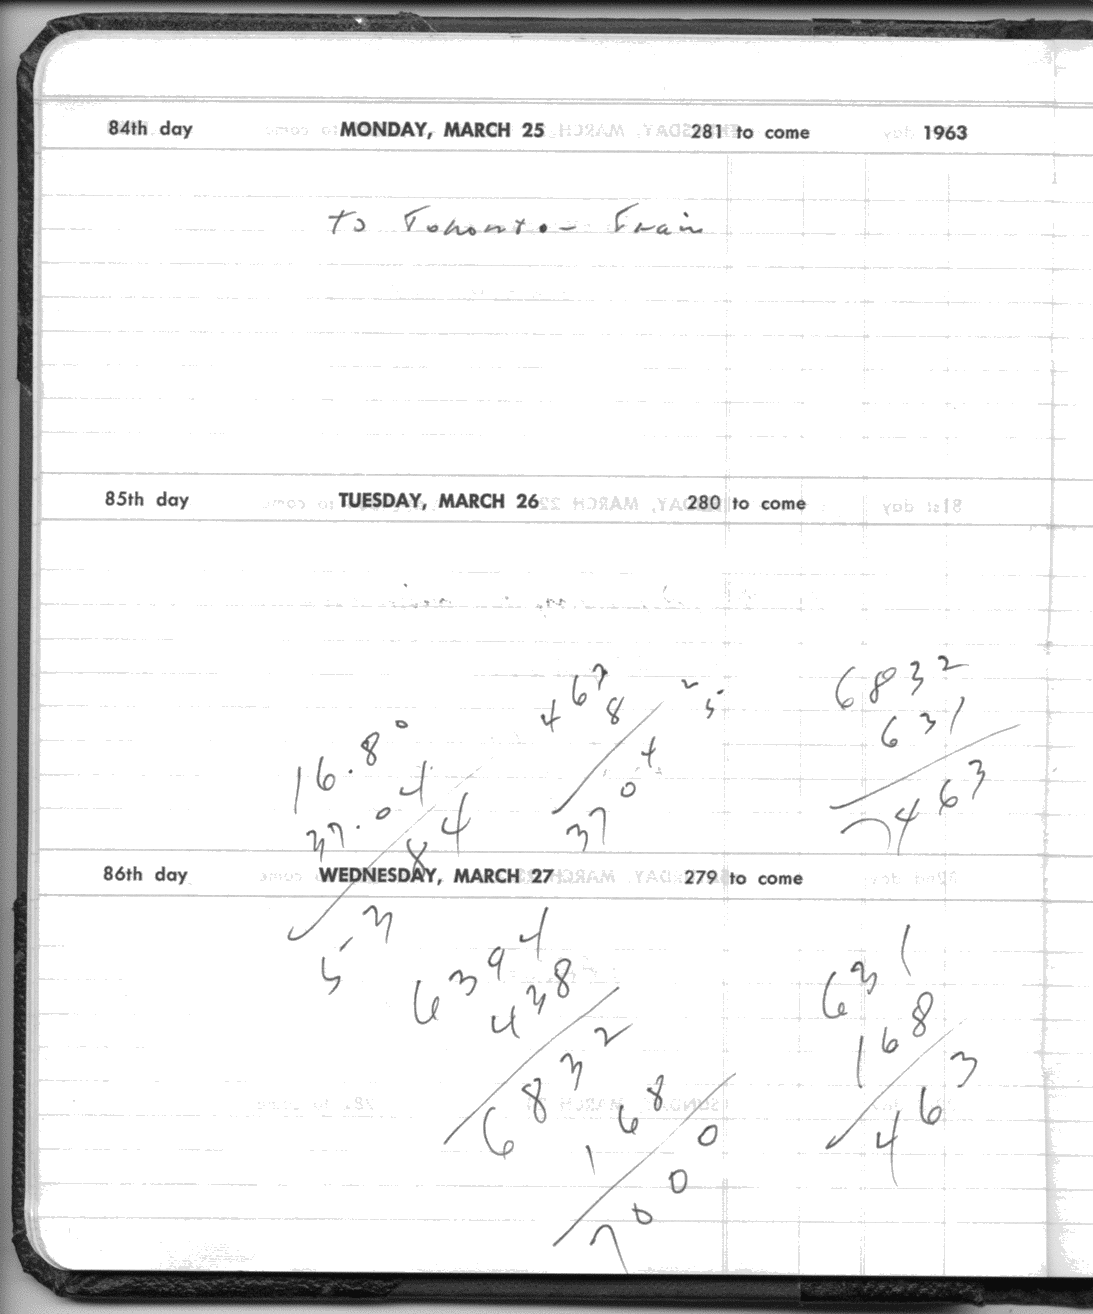 84th day MONDAY, MARCH 25 281 to come 1963
To Toronto - Train
85th day TUESDAY, MARCH 26 280 to come
16.80
37.04
53 84
467
8
3704
25
6832
631
7463
86th day WEDNESDAY, MARCH 27 279 to come
6394
438
6832
168
7000
631
168
463